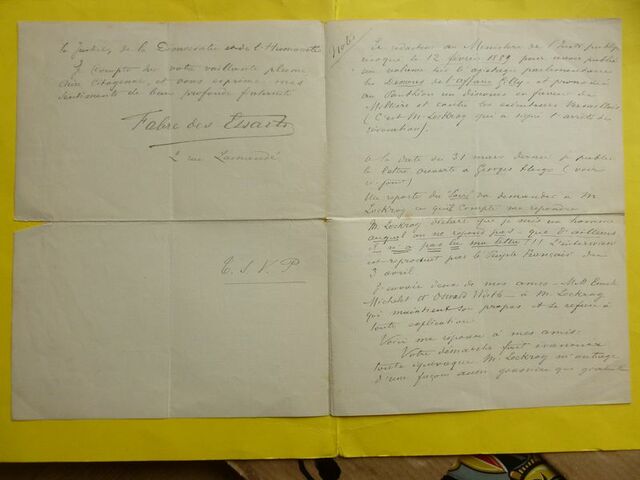 la Justice, de la Democratie et de l'Humanité
Je compte sur votre vaillante plume
cher citoyen, et vous exprime mes
sentiments de bien profonde fraternité
Fabre des Essarts
2 rue Lacuée
T. S. V. P
Notes
Je rédacteur au Ministère de l'Inst. publiq.
révoqué le 12 février 1889 pour avoir publié
un volume sur le gâchis parlementaire
les dessous de l'affaire Gilly et prononcé
au Panthéon un discours en faveur de
Millière et contre les Versaillais
(C'est M. Lockroy qui a signé l'arrêté de
révocation).
A la date du 31 mars dernier je publie
la lettre ouverte à Georges (voir
ci-joint)
Un reporter du Soir va demander à M.
Lockroy ce qu'il compte me répondre
M. Lockroy déclare que je suis un homme
auquel on ne répond pas - que d'ailleurs
il n'a pas lu ma lettre!!! L'interview
est reproduit par le Peuple français du
3 avril.
J'envoie deux de mes amis - MM. Emile
Michelet et Oswald Wirth - à M. Lockroy
qui maintient son propos et se refuse à
toute explication.
Voici ma réponse à mes amis:
Votre démarche fait évanouir
toute équivoque M. Lockroy m'outrage
d'une façon aussi grossière que gratuite